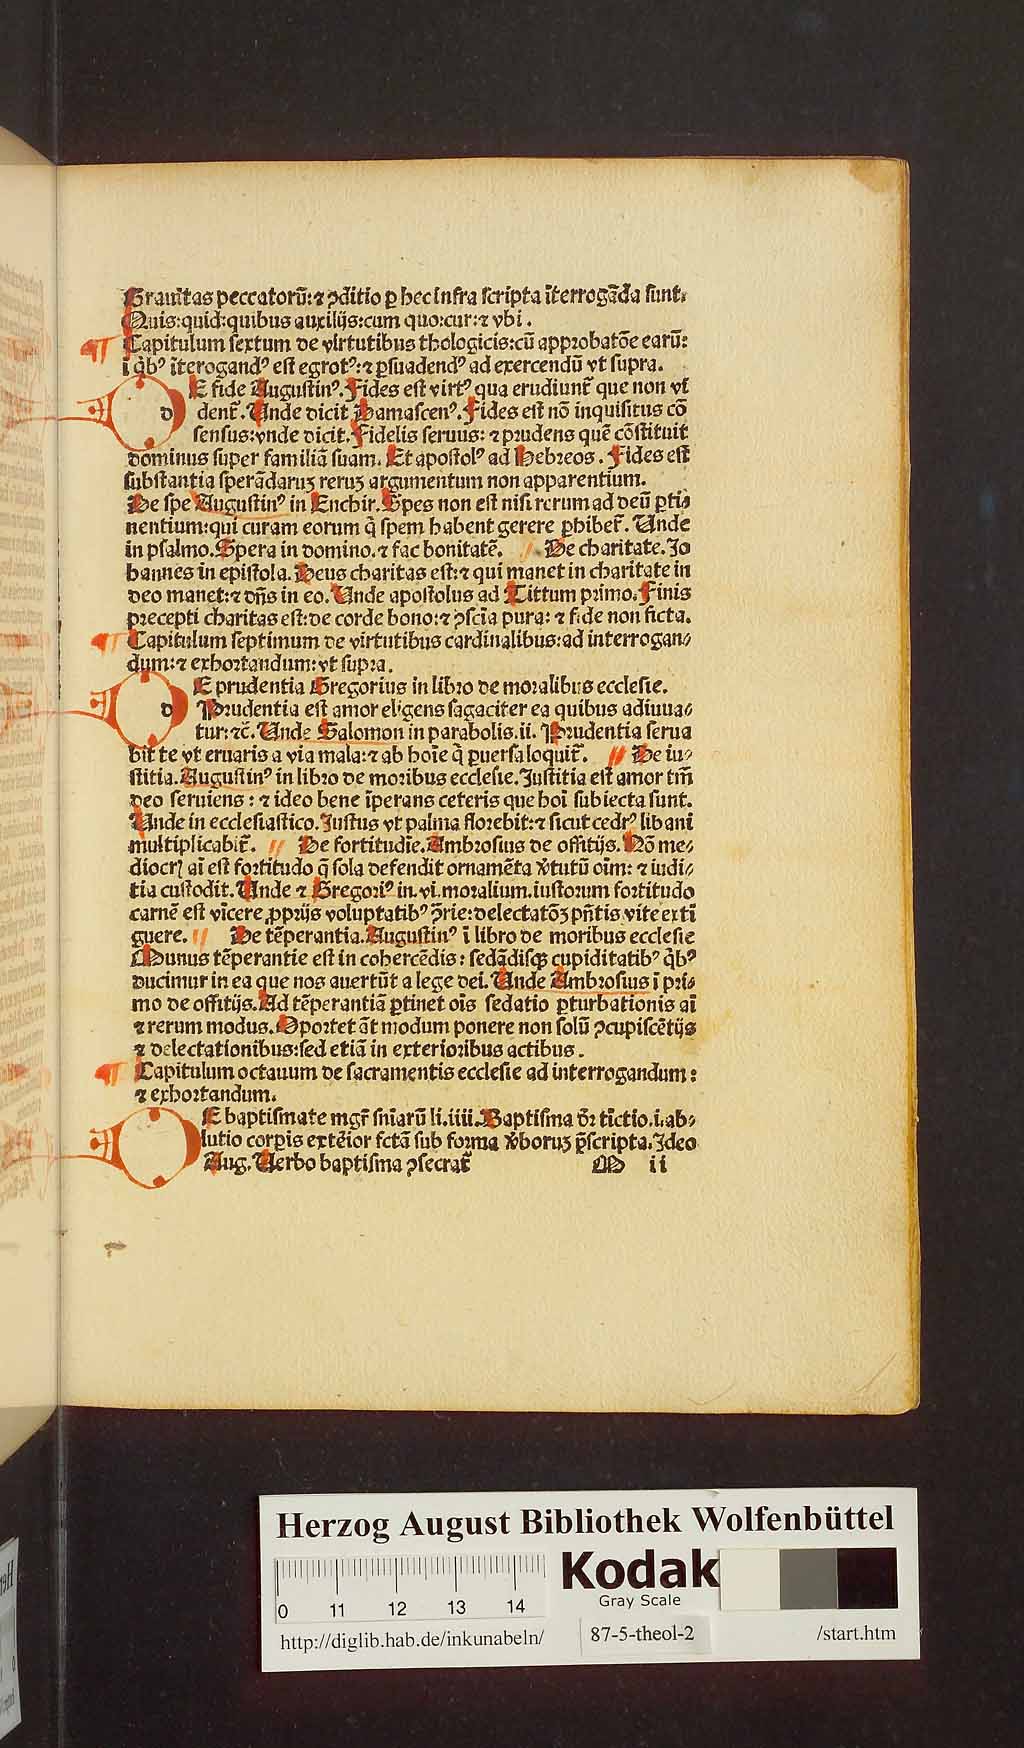 Grauitas peccatorũ: ⁊ ꝯditio ꝑ hec infra scripta ĩterrogãda sunt.
Quis: quid: quibus auxilijs: cum quo: cur: ⁊ vbi.
¶ Capitulum sextum de virtutibus thologicis: cũ approbatõe earũ:
i q̃bꝰ ĩterogandꝰ est egrotꝰ: ⁊ ꝑsuadendꝰ ad exercendũ vt supra.
dE fide Augustinꝰ. Fides est virtꝰ qua erudiunt̃ que non vt
dent̃. Unde dicit Damascenꝰ. Fides est nõ inquisitus cõ
sensus: vnde dicit. Fidelis seruus: ⁊ prudens quẽ cõstituit
dominus super familiã suam. Et apostolꝰ ad Hebreos. Fides est
substantia sperãdaruꝫ reruꝫ argumentum non apparentium.
De spe Augustinꝰ in Enchir. Spes non est nisi rerum ad deũ ꝑti⸗
nentium: qui curam eorum q̃ spem habent gerere ꝑhibet̃. Unde
in psalmo. Spera in domino. ⁊ fac bonitatẽ. De charitate. Jo
hannes in epistola. Deus charitas est: ⁊ qui manet in charitate in
deo manet: ⁊ dñs in eo. Unde apostolus ad Tittum primo. Finis
precepti charitas est: de corde bono: ⁊ ꝯscĩa pura: ⁊ fide non ficta.
¶ Capitulum septimum de virtutibus cardinalibus: ad interrogan⸗
dum: ⁊ exhortandum: vt supra.
dE prudentia Gregorius in libro de moralibus ecclesie.
Prudentia est amor eligens sagaciter ea quibus adiuua⸗
tur: ⁊c̃. Unde Salomon in parabolis. ii. Prudentia serua
bit te vt eruaris a via mala: ⁊ ab hoĩe q̃ ꝑuersa loquit̃. De iu⸗
stitia. Augustinꝰ in libro de moribus ecclesie. Justitia est amor tm̃
deo seruiens: ⁊ ideo bene ĩperans ceteris que hoĩ subiecta sunt.
Unde in ecclesiastico. Justus vt palma florebit: ⁊ sicut cedrꝰ libani
multiplicabit̃. De fortitudĩe. Ambrosius de offitijs. Nõ me⸗
diocrꝭ aĩ est fortitudo q̃ sola defendit ornamẽta v̾tutũ oĩm: ⁊ iudi⸗
tia custodit. Unde ⁊ Gregoriꝰ in. vi. moralium. iustorum fortitudo
carnẽ est vĩcere ꝓprijs voluptatibꝰ ꝯ̃rie: delectatõꝫ pñtis vite exti
guere. De tẽperantia. Augustinꝰ ĩ libro de moribus ecclesie
Munus tẽperantie est in cohercẽdis: sedãdisqꝫ cupiditatibꝰ q̃bꝰ
ducimur in ea que nos auertũt a lege dei. Unde Ambrosius ĩ pri⸗
mo de offitijs. Ad tẽperantiã ꝑtinet oĩs sedatio ꝑturbationis aĩ
⁊ rerum modus. Oportet ãt modum ponere non solũ ꝯcupiscẽtijs
⁊ delectationibus: sed etiã in exterioribus actibus.
¶ Capitulum octauum de sacramentis ecclesie ad interrogandum:
⁊ exhortandum.
E baptismate mgr̃ sniarũ li. iiii. Baptisma dr̃ tĩctio. i. ab⸗
lutio corpis extẽior fctã sub forma v̾boruꝫ p̃scripta. Jdeo
Aug. Uerbo baptisma ꝯsecrat̃ M ii
Herzog August Bibliothek Wolfenbüttel
Kodak
Gray Scale
0 11 12 13 14
http://diglib.hab.de/inkunabeln/ 87-5-theol-2 /start.htm